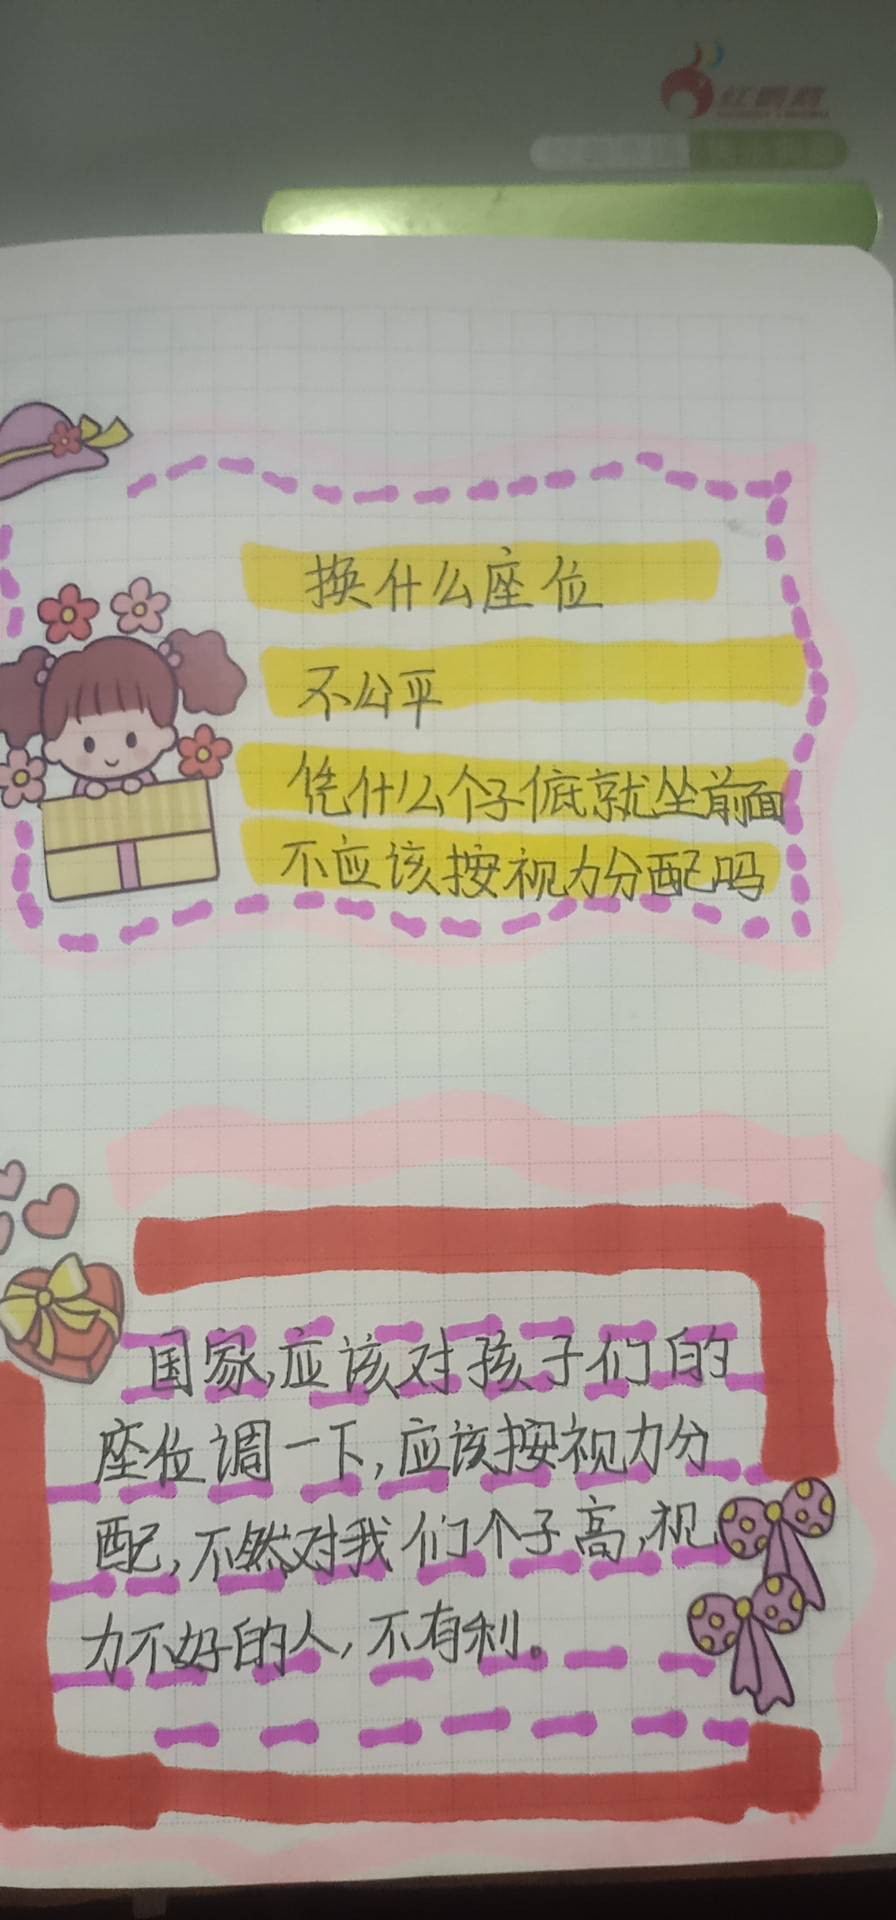 换什么座位
不公平
凭什么个子低就坐前面
不应该按视力分配吗
国家,应该对孩子们的
座位调一下,应该按视力分
配,不然对我们个子高,视
力不好的人,不有利。